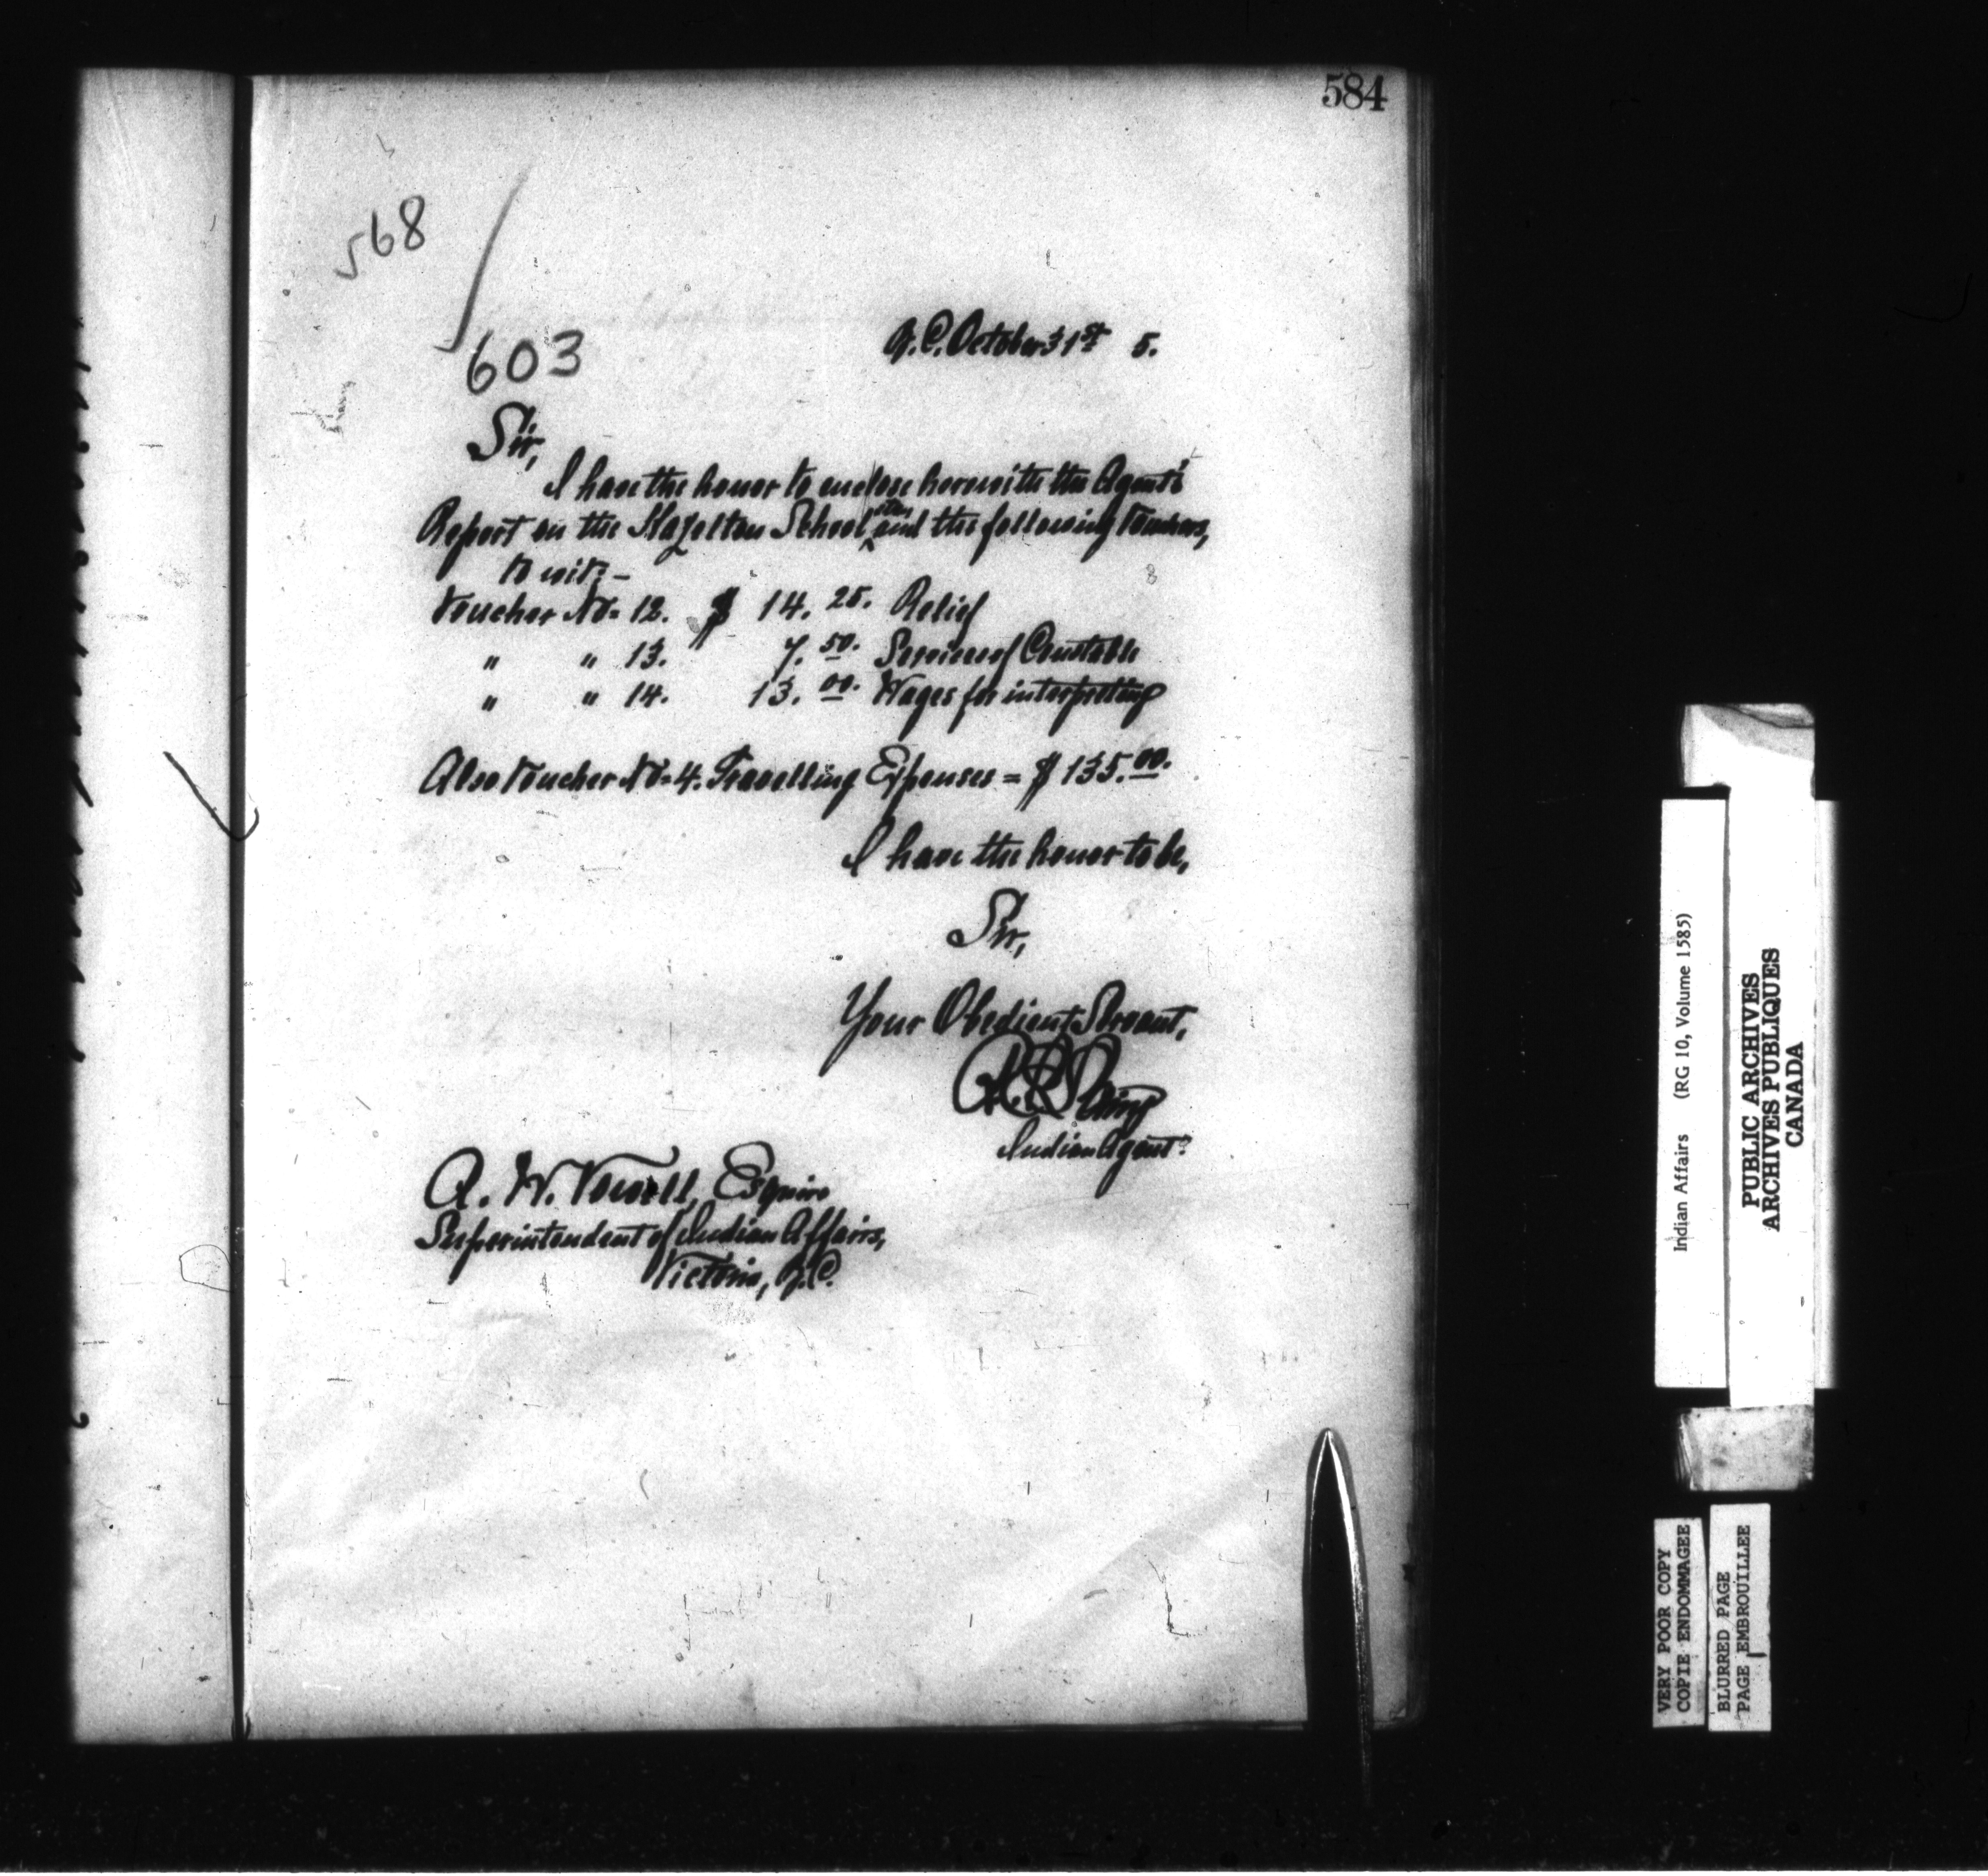 584
568
603
B.C. October 31st 5.
Sir,
I have the honor to enclose herewith the Agent's
Report on the Hazelton School, and the following Vouchers,
to wit:-
Voucher No= 12. $ 14. 25. Relief
" " 13. 7. 50. Services of Constable
" " 14. 13. 00. Wages for interpreting
Also Voucher No= 4. Travelling Expenses = $ 135.00.
I have the honor to be,
Sir,
Your Obedient Servant,
Indian Agent.
A. W. Vowell, Esquire
Superintendent of Indian Affairs,
Victoria, B.C.
Indian Affairs (RG 10, Volume 1585)
PUBLIC ARCHIVES
ARCHIVES PUBLIQUES
CANADA
VERY POOR COPY
COPIE ENDOMMAGEE
BLURRED PAGE
PAGE EMBROUILLEE